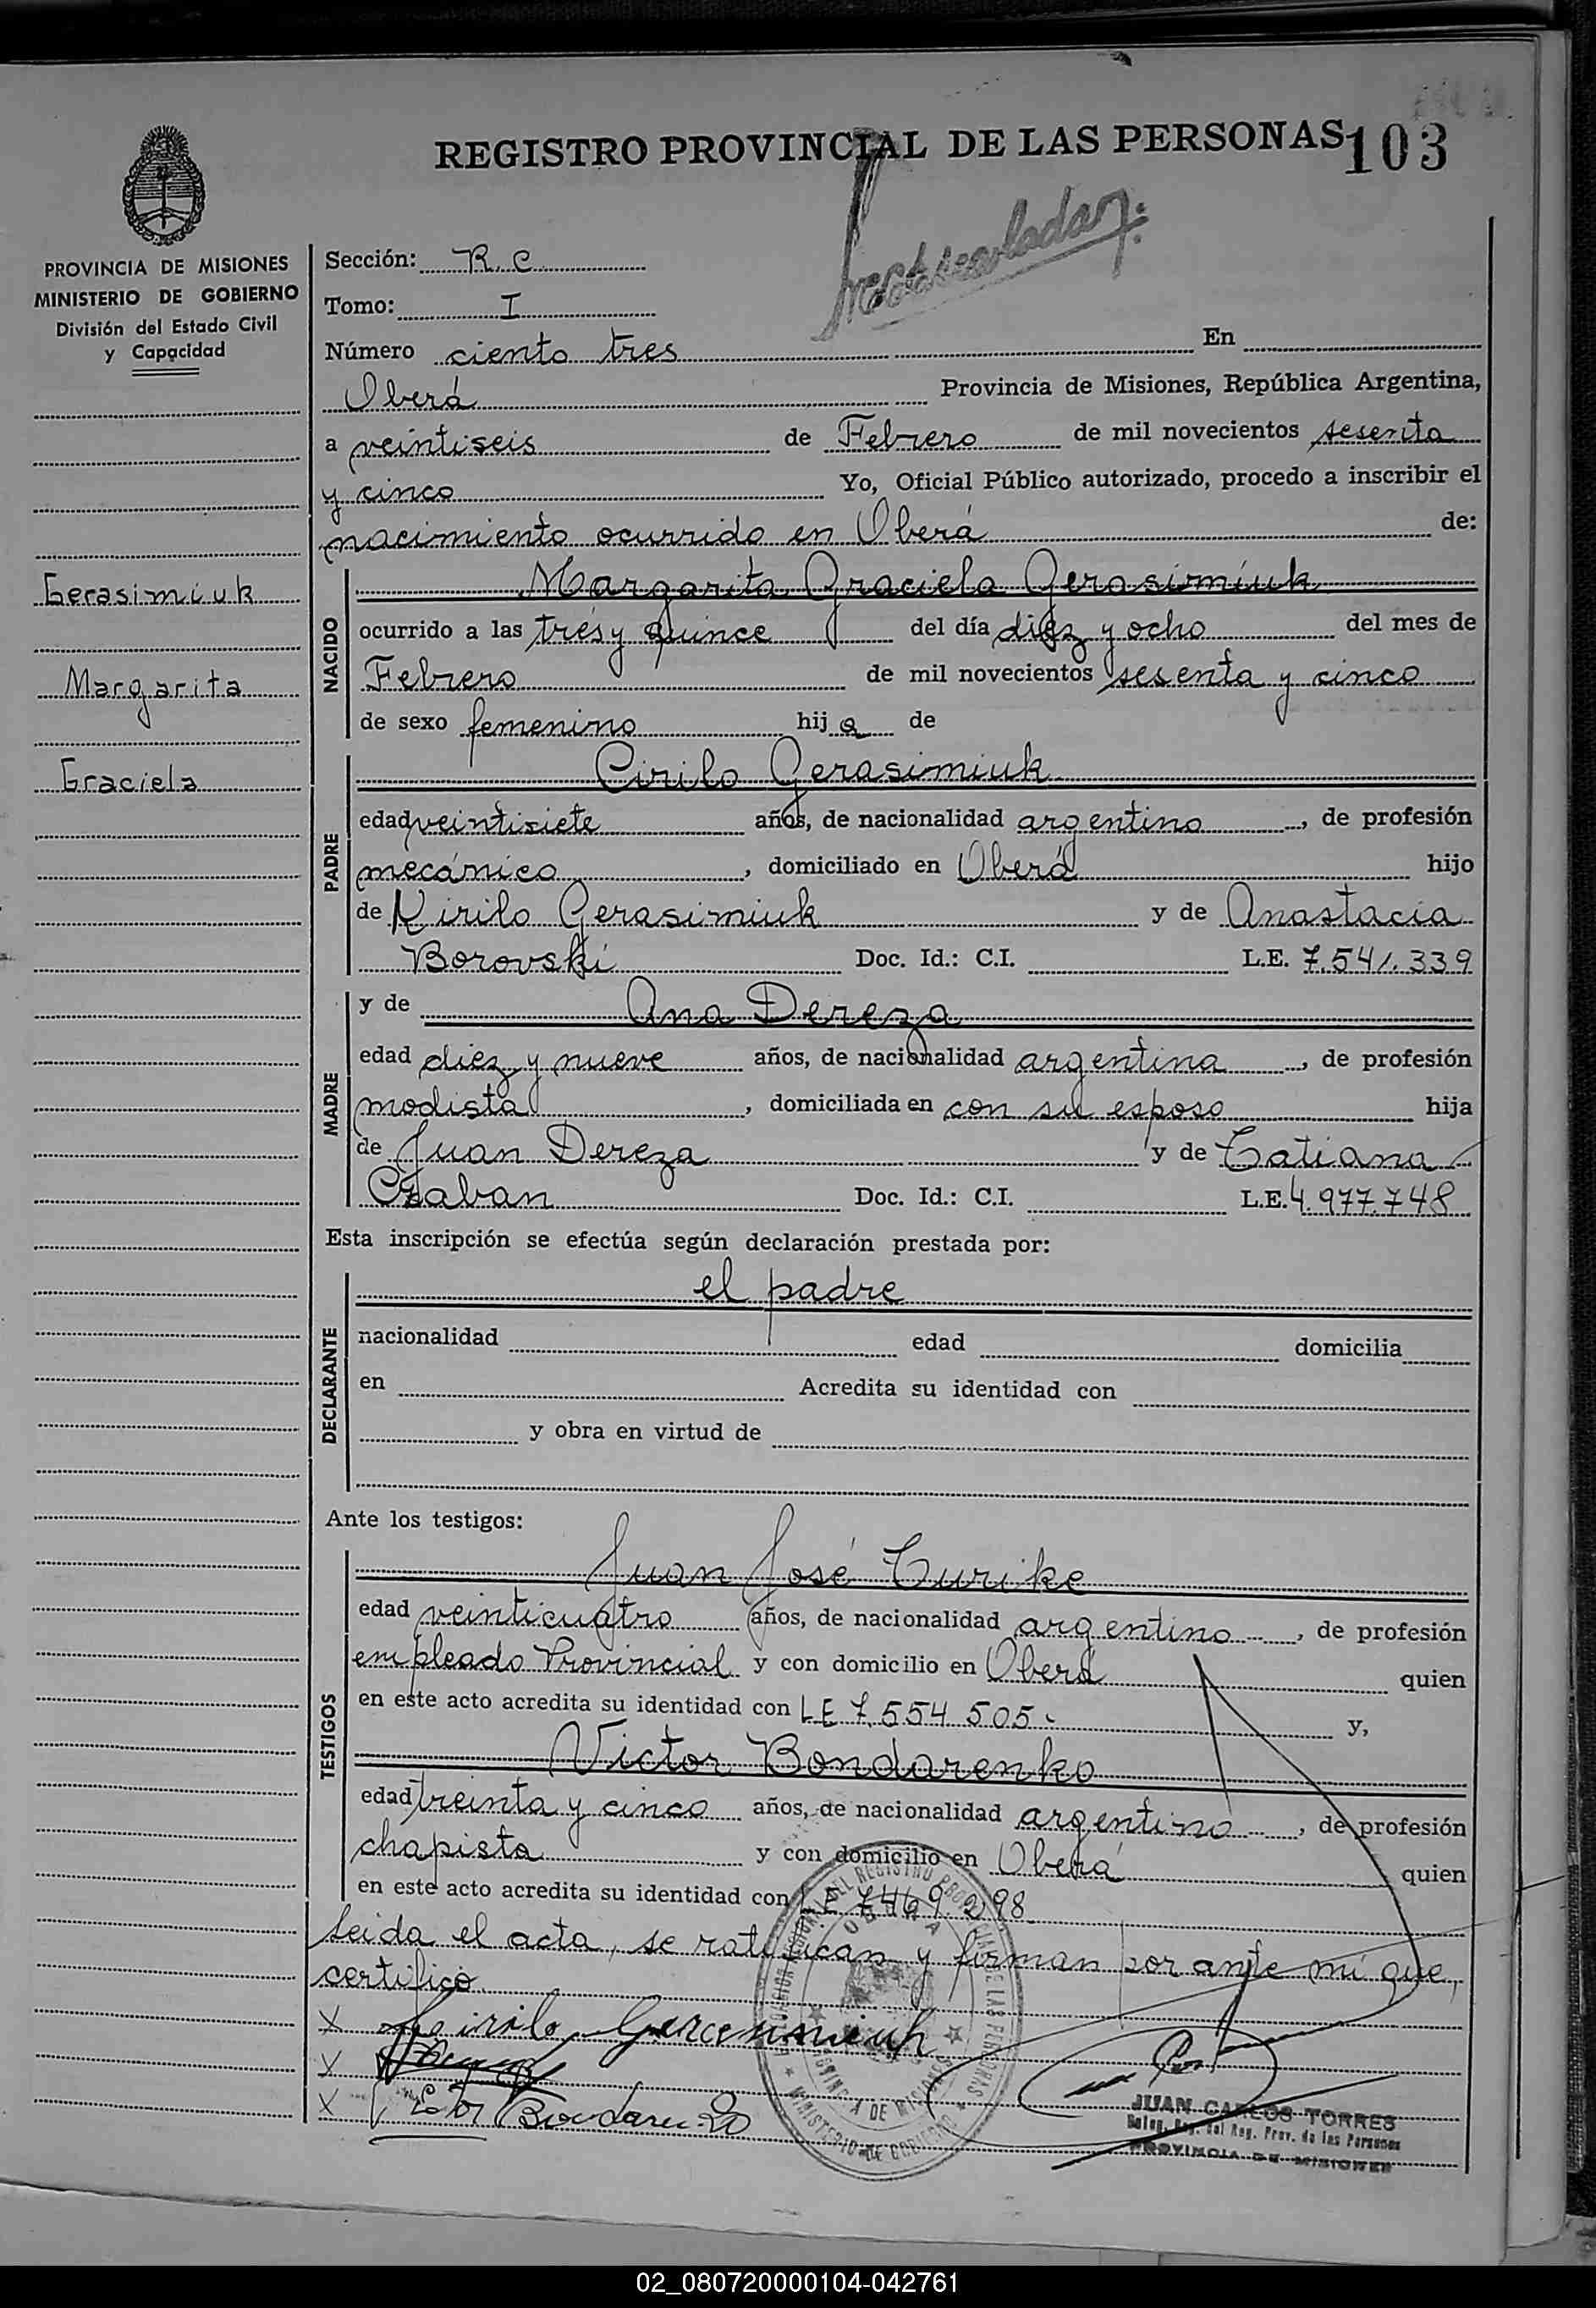 REGISTRO PROVINCIAL DE LAS PERSONAS 103
PROVINCIA DE MISIONES
MINISTERIO DE GOBIERNO
División del Estado Civil
y Capacidad
Gerasimiuk
Margarita
Graciela
Sección: R. C.
Tomo: I
Número ciento tres En
Oberá Provincia de Misiones, República Argentina,
a veintiseis de Febrero de mil novecientos sesenta
y cinco Yo, Oficial Público autorizado, procedo a inscribir el
nacimiento ocurrido en Oberá de:
NACIDO
Margarita Graciela Gerasimiuk
ocurrido a las tres y quince del día diez y ocho del mes de
Febrero de mil novecientos sesenta y cinco
de sexo femenino hija de
PADRE
Cirilo Gerasimiuk
edad veintisiete años, de nacionalidad argentino, de profesión
mecánico, domiciliado en Oberá hijo
de Kirilo Gerasimiuk y de Anastacia
Borovski Doc. Id.: C.I. L.E. 7.541.339
MADRE
y de Ana Dereza
edad diez y nueve años, de nacionalidad argentina, de profesión
modista, domiciliada en con su esposo hija
de Juan Dereza y de Tatiana
Czaban Doc. Id.: C.I. L.E. 4.977.748
Esta inscripción se efectúa según declaración prestada por:
DECLARANTE
el padre
nacionalidad edad domicilia
en Acredita su identidad con
y obra en virtud de
Ante los testigos:
TESTIGOS
Juan José Turike
edad veinticuatro años, de nacionalidad argentino, de profesión
empleado Provincial y con domicilio en Oberá quien
en este acto acredita su identidad con LE 7.554.505 y,
Victor Bondarenko
edad treinta y cinco años, de nacionalidad argentino, de profesión
chapista y con domicilio en Oberá quien
en este acto acredita su identidad con LE 7469.298
Leida el acta, se ratifican y firman por ante mi que,
certifico.
X
X
X
JUAN CARLOS TORRES
PROVINCIA DE MISIONES
02_080720000104-042761